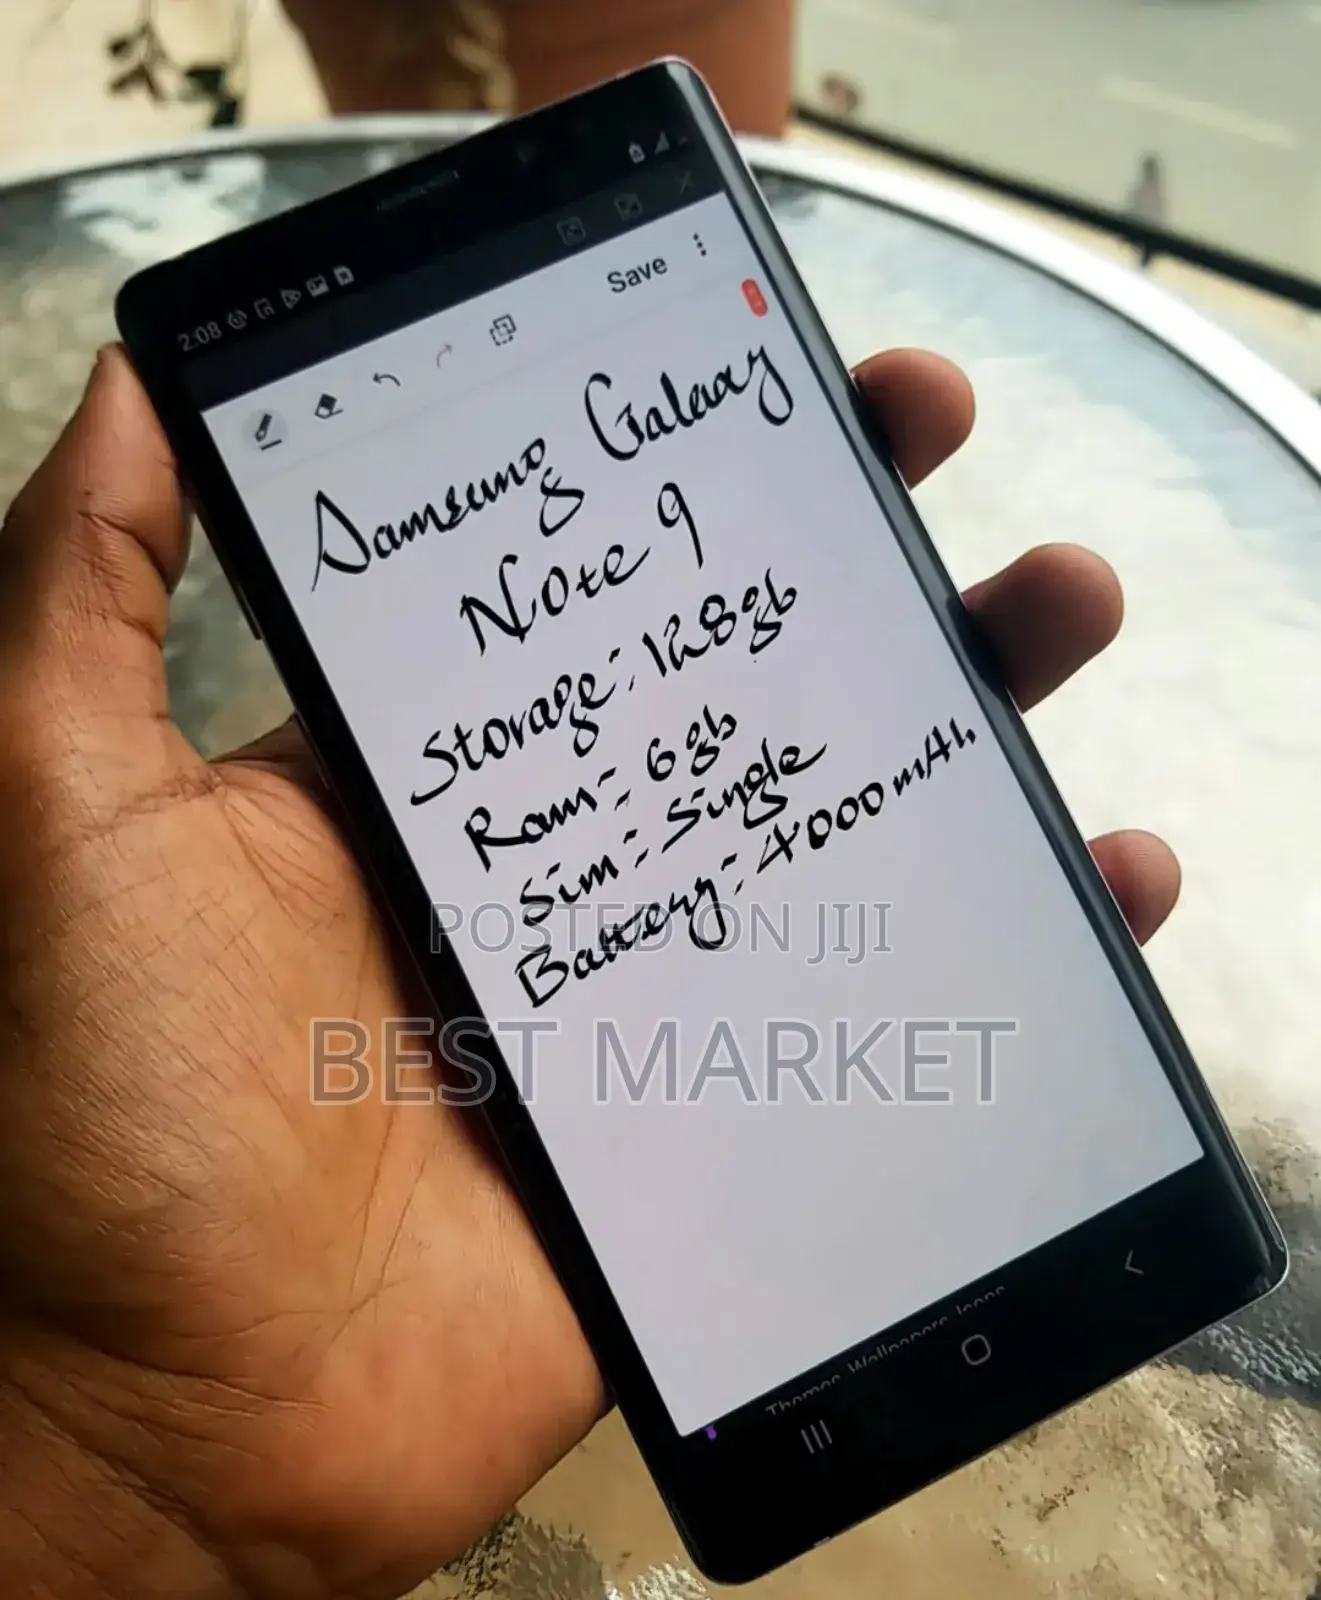 2:08
Save
Samsung Galaxy
Note 9
Storage:- 128gb
Ram:- 6gb
Sim:- Single
Battery:- 4000mAh
POSTED ON JIJI
BEST MARKET
Themes, Wallpapers, Icons